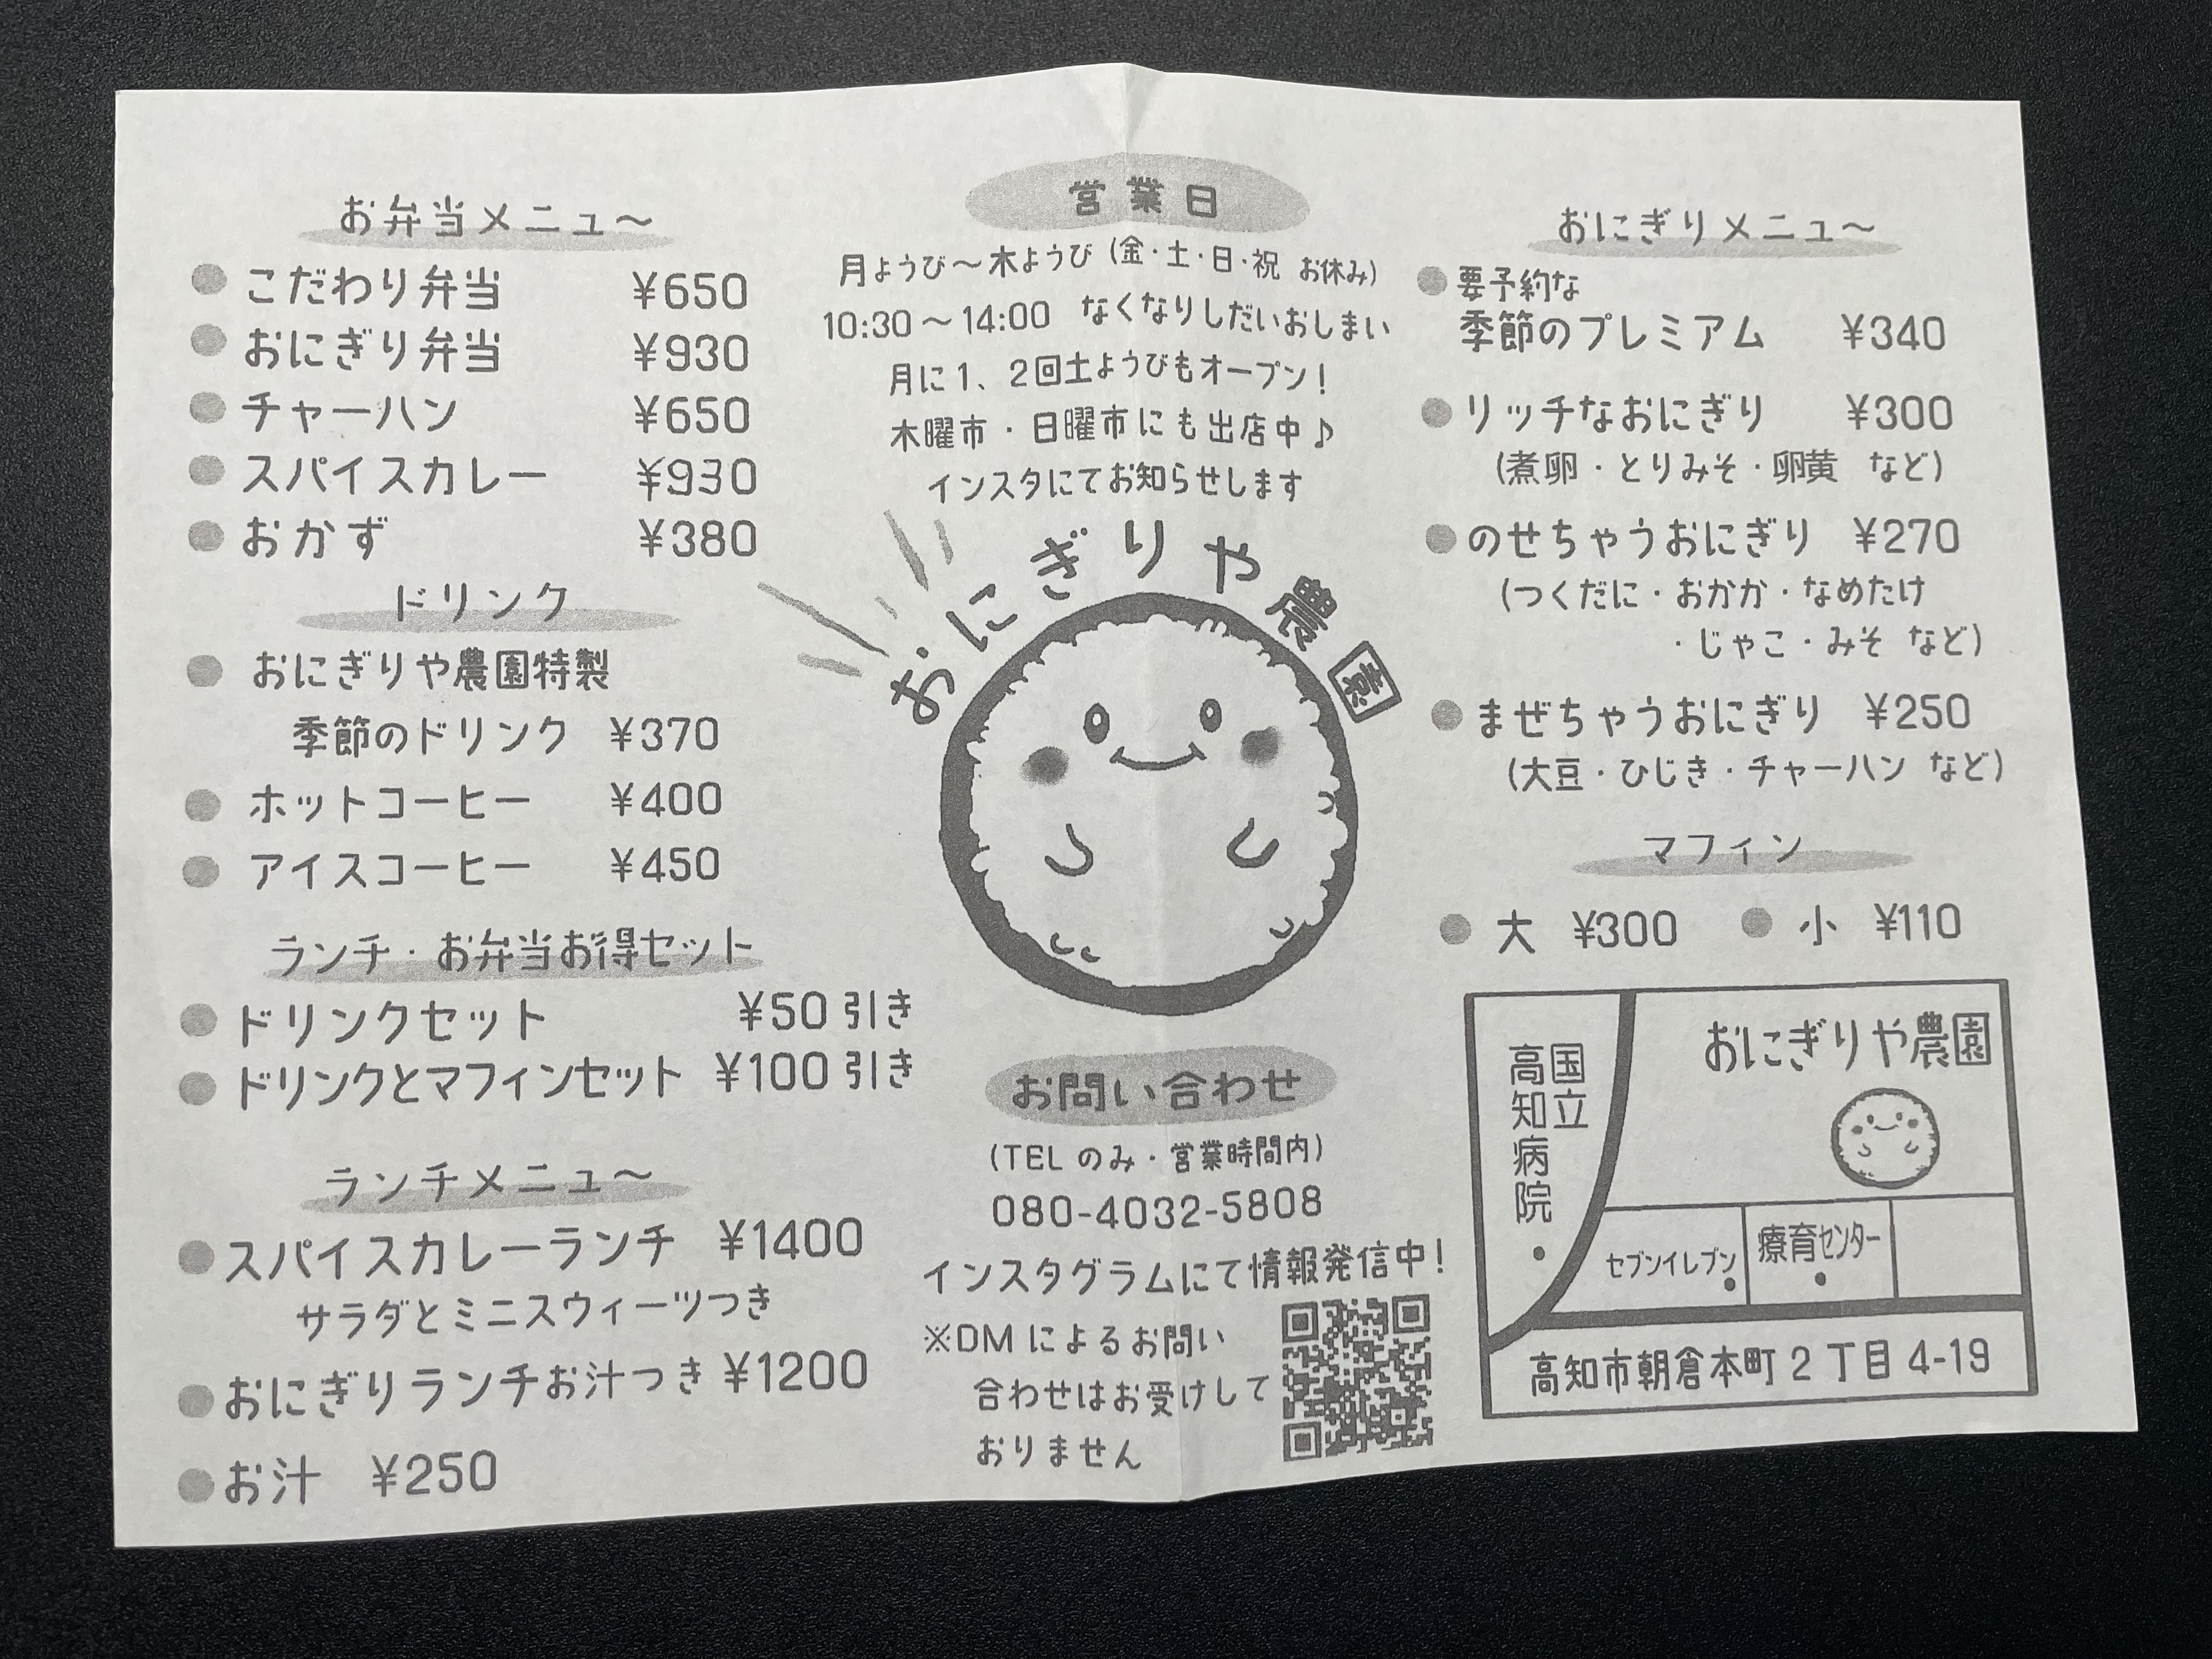 お弁当メニュ～
こだわり弁当 ¥650
おにぎり弁当 ¥930
チャーハン ¥650
スパイスカレー ¥930
おかず ¥380
ドリンク
おにぎりや農園特製
季節のドリンク ¥370
ホットコーヒー ¥400
アイスコーヒー ¥450
ランチ・お弁当お得セット
ドリンクセット ¥50引き
ドリンクとマフィンセット ¥100引き
ランチメニュ～
スパイスカレーランチ ¥1400
サラダとミニスウィーツつき
おにぎりランチお汁つき ¥1200
お汁 ¥250
営業日
月ようび～木ようび (金・土・日・祝 お休み)
10:30～14:00 なくなりしだいおしまい
月に1、2回土ようびもオープン!
木曜市・日曜市にも出店中♪
インスタにてお知らせします
おにぎりや農園
お問い合わせ
(TELのみ・営業時間内)
080-4032-5808
インスタグラムにて情報発信中!
※DMによるお問い
合わせはお受けして
おりません
おにぎりメニュ～
要予約な
季節のプレミアム ¥340
リッチなおにぎり ¥300
(煮卵・とりみそ・卵黄 など)
のせちゃうおにぎり ¥270
(つくだに・おかか・なめたけ
・じゃこ・みそ など)
まぜちゃうおにぎり ¥250
(大豆・ひじき・チャーハン など)
マフィン
大 ¥300 小 ¥110
おにぎりや農園
国立
高知病院
セブンイレブン
療育センター
高知市朝倉本町2丁目4-19